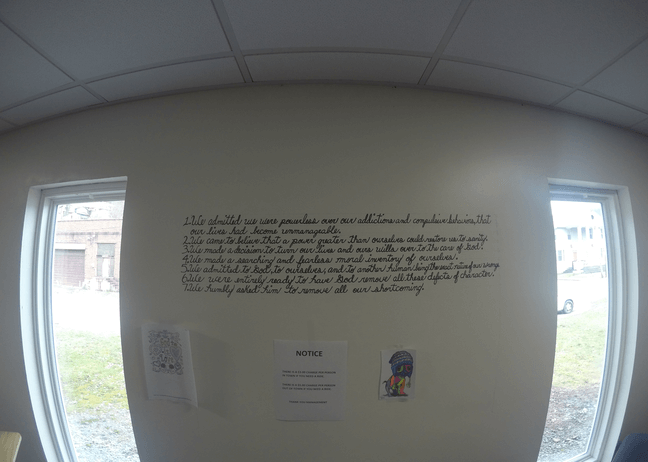 1. We admitted we were powerless over our addictions and compulsive behaviors, that
our lives had become unmanageable.
2. We came to believe that a power greater than ourselves could restore us to sanity.
3. We made a decision to turn our lives and our wills over to the care of God.
4. We made a searching and fearless moral inventory of ourselves.
5. We admitted to God, to ourselves, and to another human being the exact nature of our wrongs
6. We were entirely ready to have God remove all these defects of character.
7. We humbly asked him to remove all our shortcoming.
NOTICE